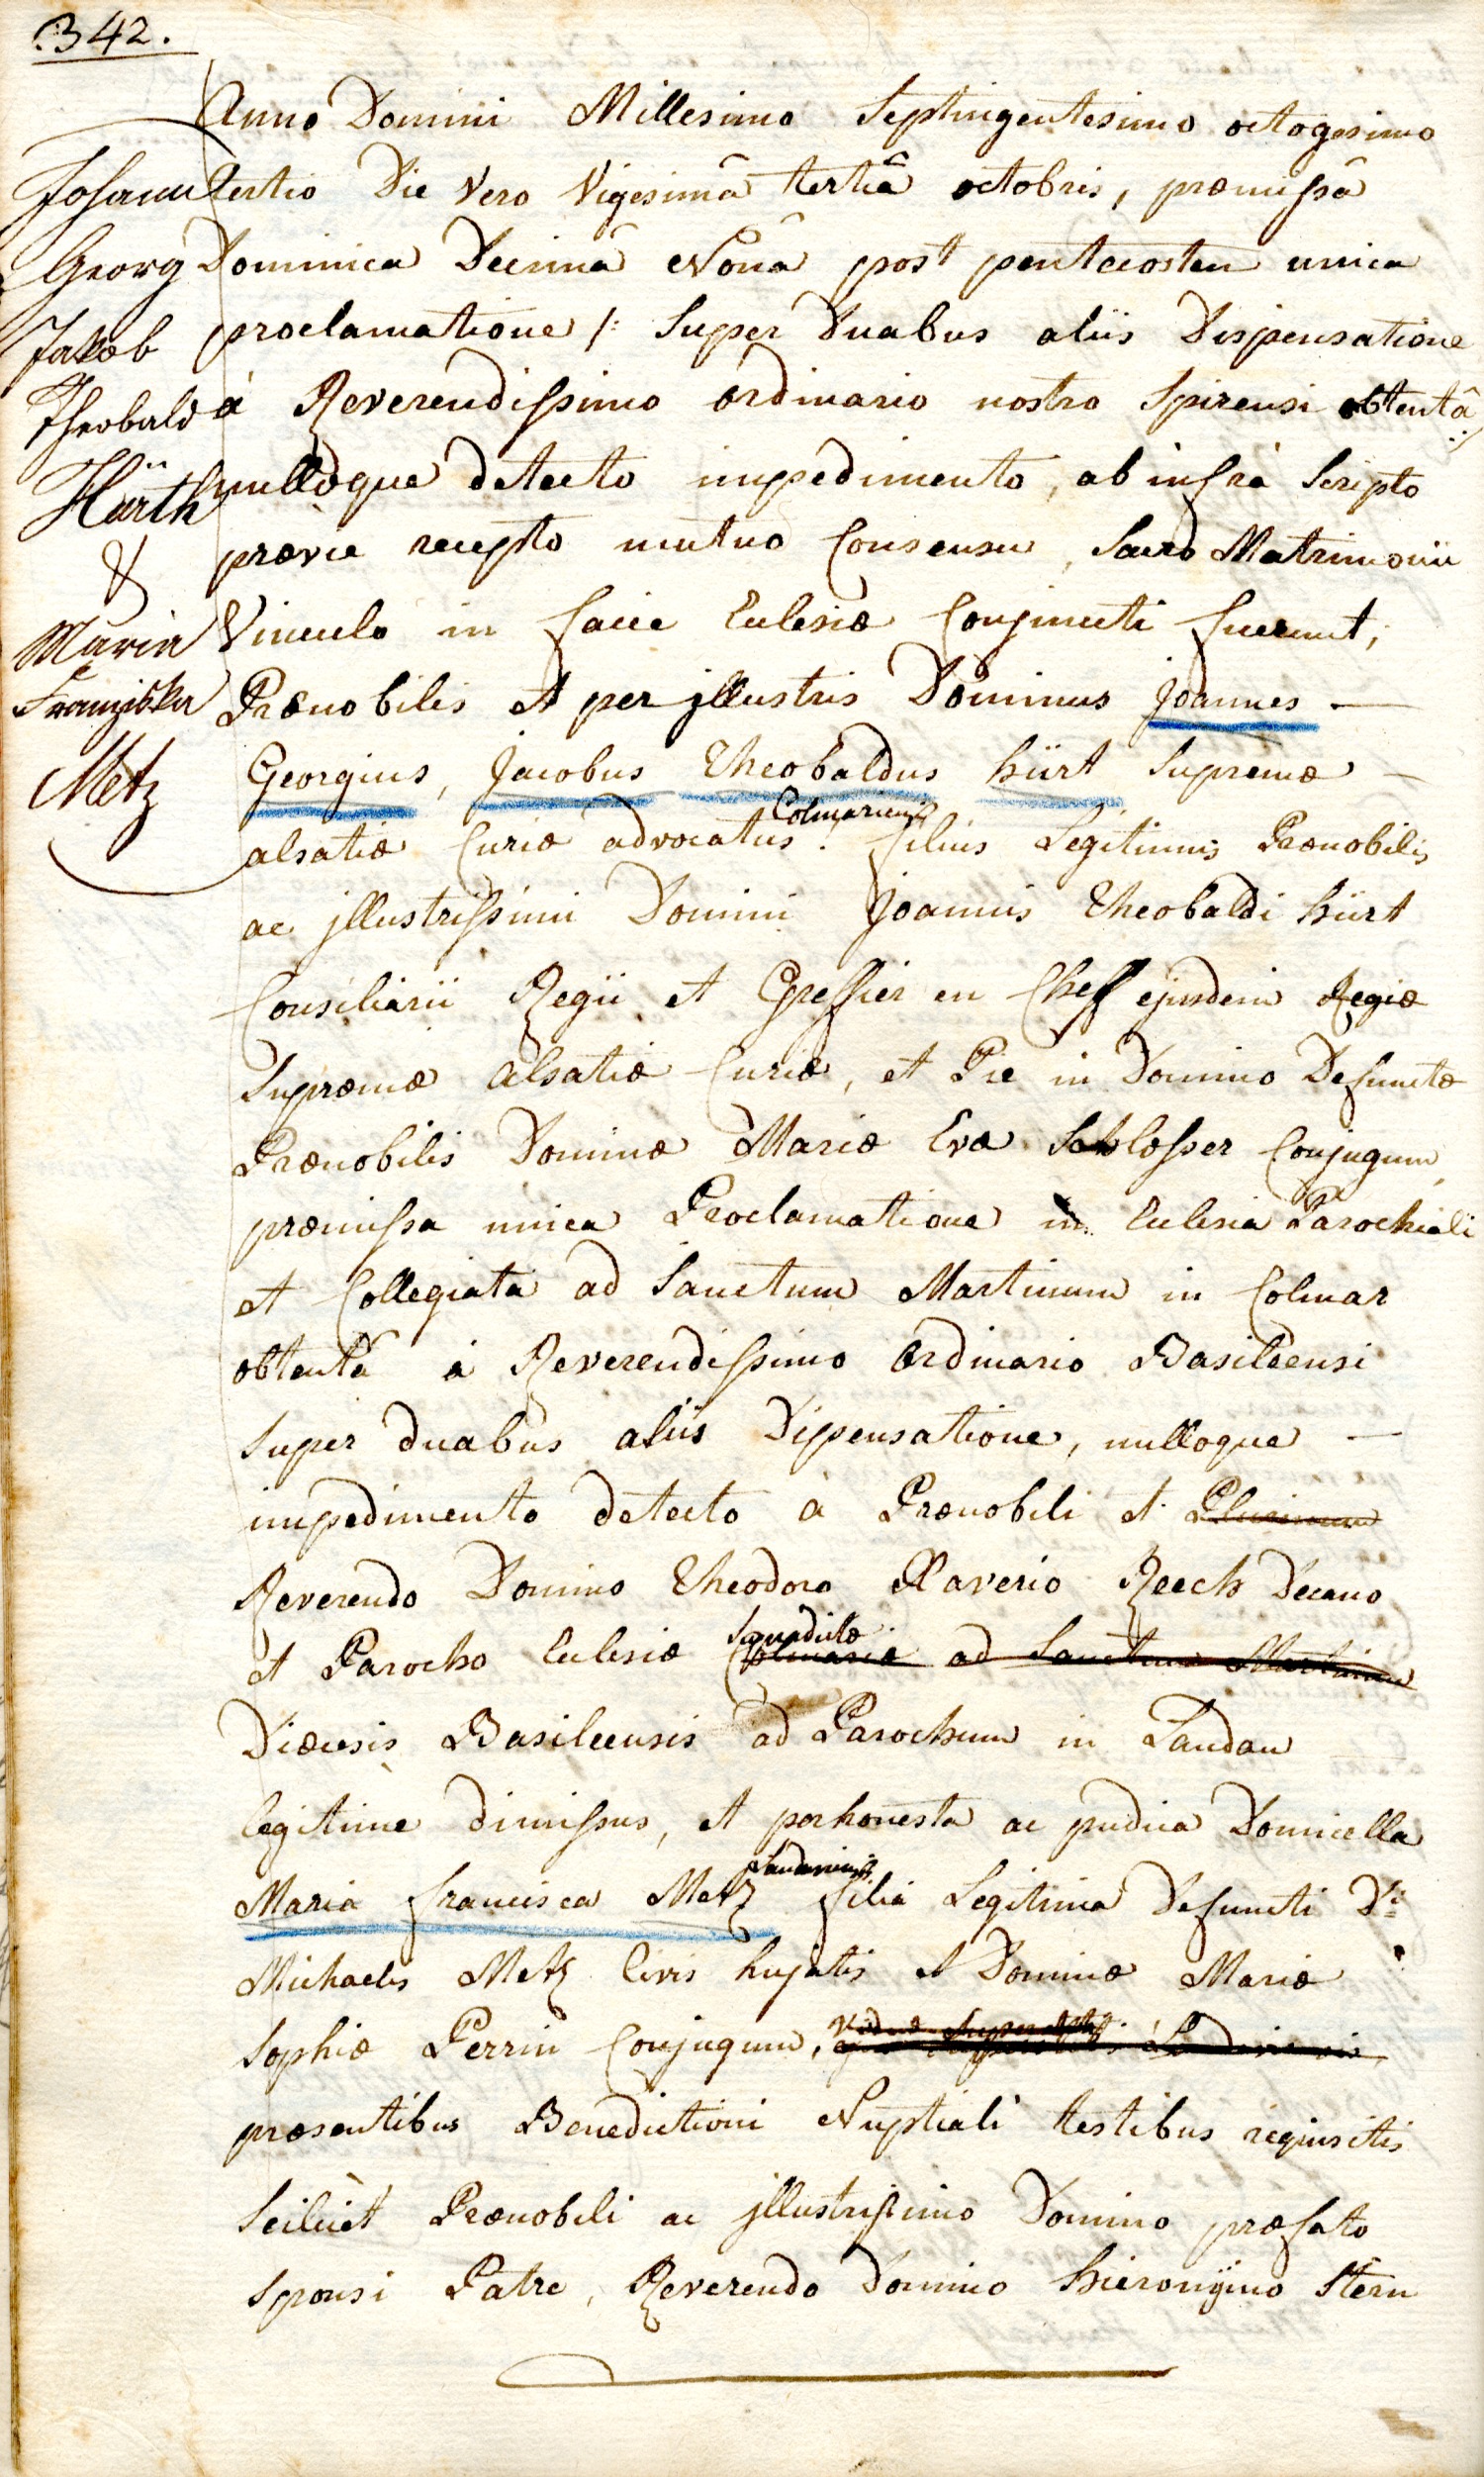 342.
Johann
Georg
Jakob
Theobald
Hürth
&
Maria
Franziska
Metz
Anno Domini Millesimo Septingentesimo octogesimo
tertio Die Vero Vigesimâ tertiâ octobris, præmissâ
Dominica Decimâ Nonâ post pentecosten unica
proclamatione /: Super Duabus aliis Dispensatione
à Reverendissimo ordinario nostro Spirensi obtentâ :/
nulloque detecto impedimento, ab infrà Scripto
prævie recepto mutuo Consensu, Sacro Matrimonii
Vinculo in facie Eclesiæ Conjuncti fuerunt,
Prænobilis et per jllustris Dominus Joannes —
Georgius, Jacobus Theobaldus hürt Supremæ —
Colmariensis
alsatiæ Curiæ advocatus. filius Legitimus Prænobilis
ac jllustrissimi Domini Joannis Theobaldi hürt
Consiliarii Regii et Greffier en Cheff ejusdem Regiæ
Supremæ Alsatiæ Curiæ, et Pie in Domino Defunctæ
Prænobilis Dominæ Mariæ Evæ Schlosser Conjugum,
præmissa unica Proclamatione in Eclesia Parochiali
et Collegiata ad Sanctum Martinum in Colmar
obtentâ à Reverendissimo Ordinario Basileensi
Super duabus aliis Dispensatione, nulloque —
impedimento detecto à Prænobili et Plurimum
Reverendo Domino Theodoro Xaverio Reech Decano
et Parocho Eclesiæ Colmariæ ad Sanctum Martinum
Diæcesis Basileensis ad Parochum in Landau
legitime dimissus, et perhonesta ac pudica Domicella
Landaviensis
Maria francisca Metz filia Legitima Defuncti Di
Michaelis Metz Civis hujatis et Dominæ Mariæ
Sophiæ Perrin Conjugum,
præsentibus Benedictioni Nuptiali testibus requisitis
Scilicèt Prænobili ac jllustrissimo Domino præfato
Sponsi Patre, Reverendo Domino Hieronÿmo Stern